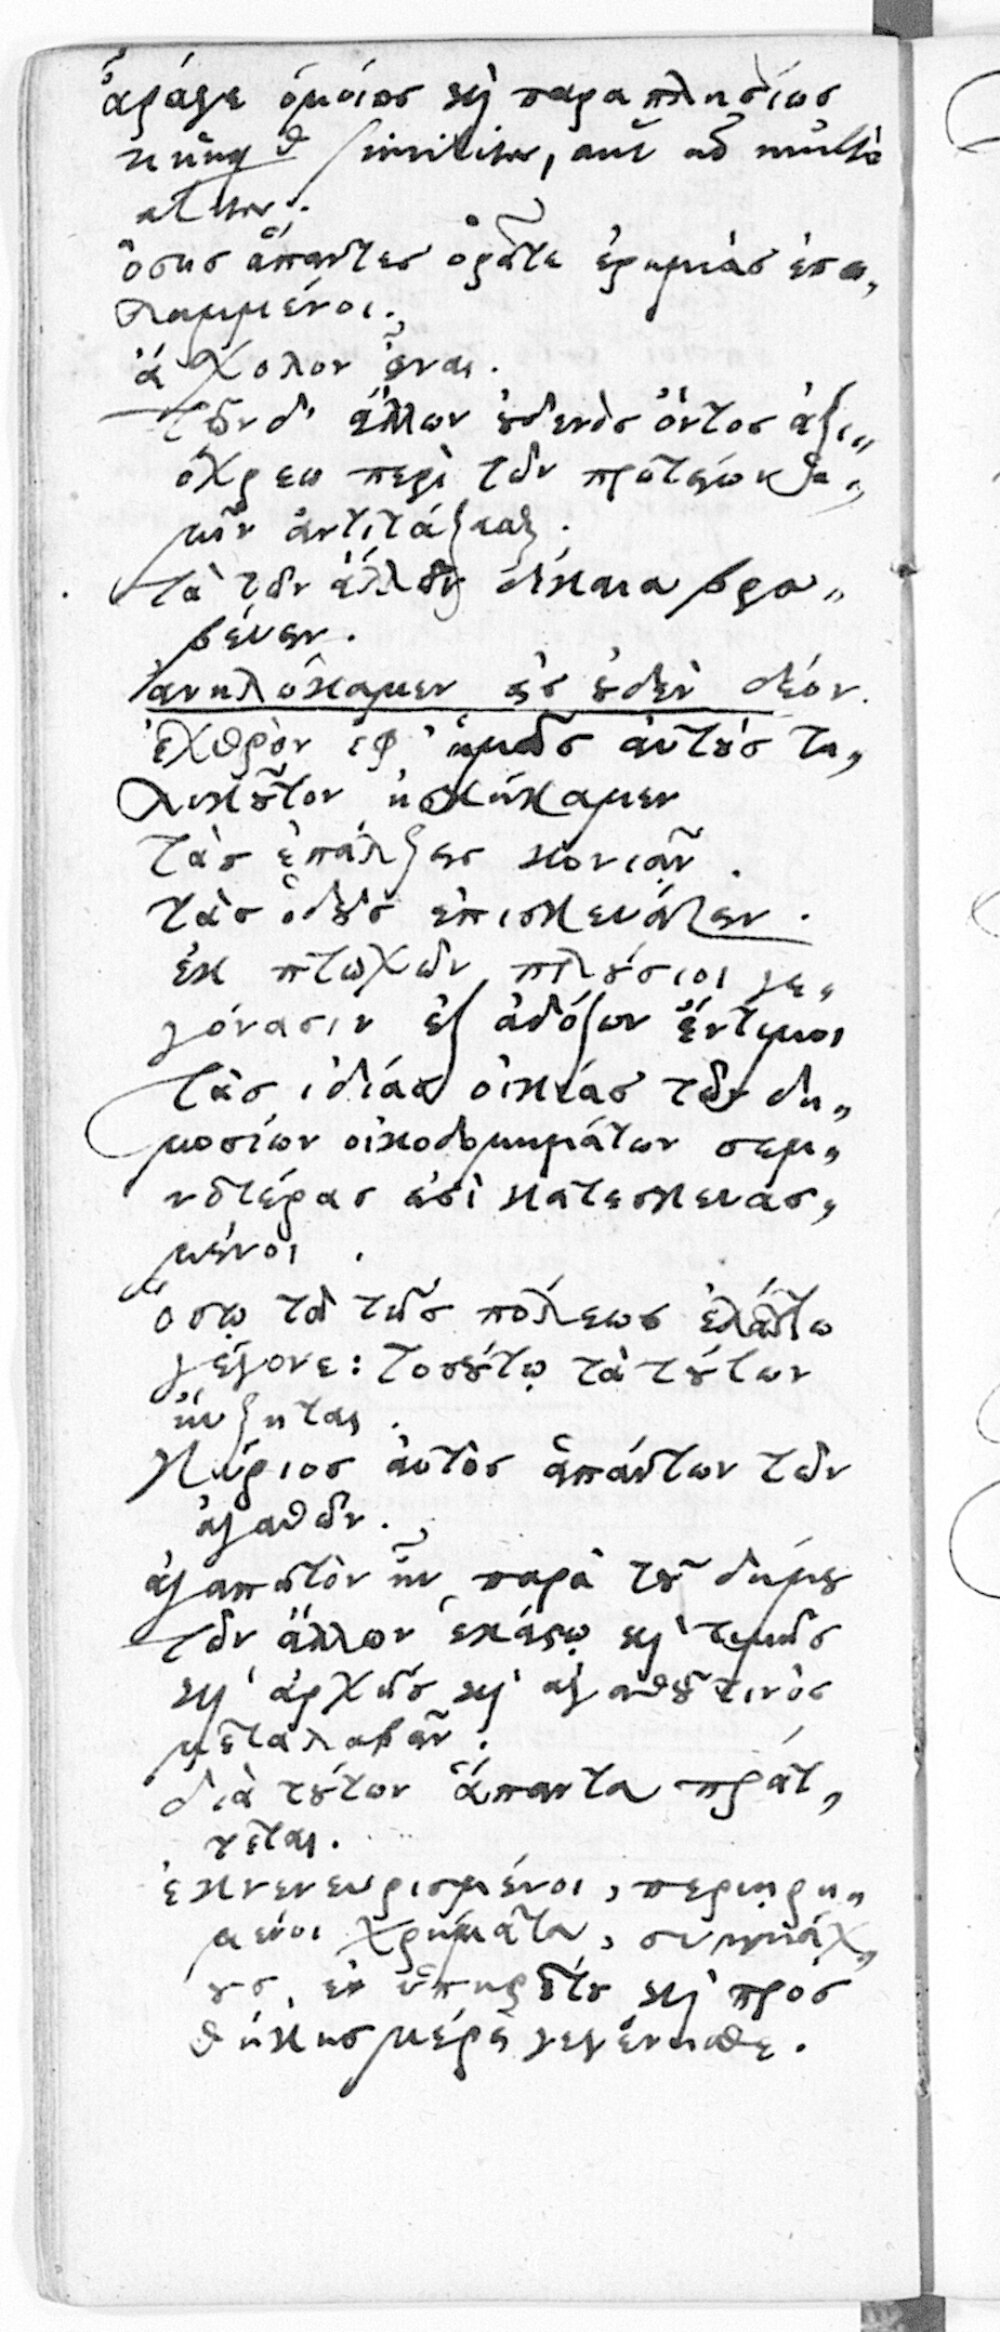 ἆράγε ὁμοίως καὶ παραπλησίως
nunquid similiter, aut ad multo
aliter.
ὅσης ἅπαντες ὁρᾶτε ἐρημίας ἐπει„
λημμένοι.
ἀχολον εἶναι.
τῶν δ' ἄλλων ȣ̓δενὸς ὄντος ἀξι„
όχρεω περὶ τῶν πρωτείων η„
μῖν ἀντιτάξασθαι.
τὰ τῶν ἄλλων δίκαια βρα„
βεύειν.
ἀνηλώκαμεν εἰς ȣ̓δὲν δέον.
ἐχθρὸν ἐφ' ἡμᾶς αὐτȣ̀ς τη„
λικȣ͂τον ἠσκήκαμεν
τὰς ἐπάλξεις κονιᾷν.
τὰς ὁδȣ̀ς ἐπισκευάζειν.
ἐκ πτωχῶν πλȣ́σιοι γε„
γόνασιν ἐξ ἀδόξων ἔντιμοι
τὰς ἰδίας οἰκίας τῶν δη„
μοσίων οἰκοδομημάτων σεμ„
νοτέρας εἰσὶ κατεσκευασ„
μένοι.
ὅσῳ τὰ τῆς πόλεως ἐλάττω
γέγονε: τοσȣ́τῳ τὰ τȣ́των
ηὔξηται.
κύριος αὐτὸς ἁπάντων τῶν
ἀγαθῶν.
ἀγαπητὸν ἦν παρὰ τȣ͂ δήμȣ
τῶν ἄλλων ἑκάςῳ καὶ τιμῆς
καὶ ἀρχῆς καὶ ἀγαθȣ͂ τινὸς
μεταλαβεῖν.
διὰ τȣ́των ἅπαντα πράτ„
τεται.
ἐκνενευρισμένοι, περιῃρη„
μένοι χρήματα, συμμάχ„
ȣς, ἐν ὑπηρέτȣ καὶ προσ
θήκης μέρει γεγένησθε.